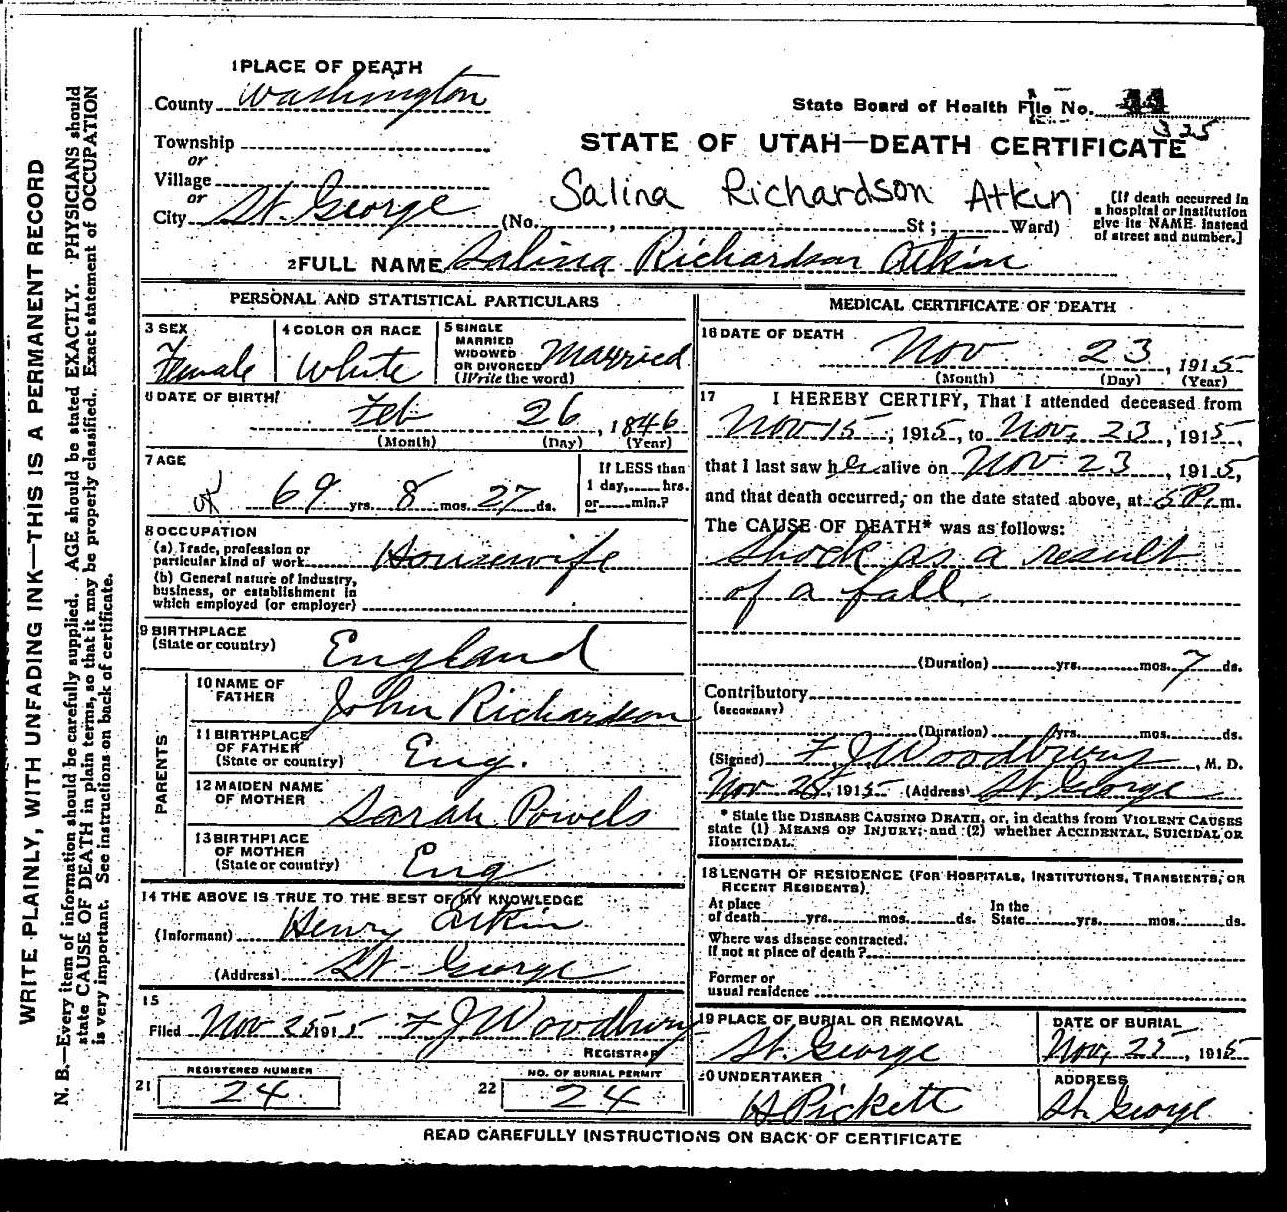 1 PLACE OF DEATH
County Washington
State Board of Health File No.
325
Township
or
STATE OF UTAH—DEATH CERTIFICATE
Village
or
Salina Richardson Atkin
City St. George (No. , St; Ward)
[If death occurred in
a hospital or institution
give its NAME instead
of street and number.]
2 FULL NAME Salina Richardson Atkin
PERSONAL AND STATISTICAL PARTICULARS
3 SEX
Female
4 COLOR OR RACE
White
5 SINGLE
MARRIED
WIDOWED
OR DIVORCED
(Write the word)
Married
6 DATE OF BIRTH
Feb 26, 1846
(Month) (Day) (Year)
7 AGE
69 yrs. 8 mos. 27 ds.
If LESS than
1 day, hrs.
or min.?
8 OCCUPATION
(a) Trade, profession or
particular kind of work Housewife
(b) General nature of Industry,
business, or establishment in
which employed (or employer)
9 BIRTHPLACE
(State or country) England
PARENTS
10 NAME OF
FATHER John Richardson
11 BIRTHPLACE
OF FATHER
(State or country) Eng.
12 MAIDEN NAME
OF MOTHER Sarah Powels
13 BIRTHPLACE
OF MOTHER
(State or country) Eng
14 THE ABOVE IS TRUE TO THE BEST OF MY KNOWLEDGE
(Informant) Henry Atkin
(Address) St. George
15
Filed Nov 25 1915 F J Woodbury
REGISTRAR
21 REGISTERED NUMBER
24
22 NO. OF BURIAL PERMIT
24
MEDICAL CERTIFICATE OF DEATH
16 DATE OF DEATH
Nov 23, 1915
(Month) (Day) (Year)
17 I HEREBY CERTIFY, That I attended deceased from
Nov 15, 1915, to Nov, 23, 1915,
that I last saw her alive on Nov. 23, 1915,
and that death occurred, on the date stated above, at 5 P. m.
The CAUSE OF DEATH* was as follows:
Shock as a result
of a fall
(Duration) yrs. mos. 7 ds.
Contributory
(SECONDARY)
(Duration) yrs. mos. ds.
(Signed) F J Woodbury, M. D.
Nov 25, 1915 (Address) St. George
* State the DISEASE CAUSING DEATH, or, in deaths from VIOLENT CAUSES
state (1) MEANS OF INJURY; and (2) whether ACCIDENTAL, SUICIDAL OR
HOMICIDAL.
18 LENGTH OF RESIDENCE (FOR HOSPITALS, INSTITUTIONS, TRANSIENTS, OR
RECENT RESIDENTS).
At place
of death yrs. mos. ds.
In the
State yrs. mos. ds.
Where was disease contracted.
If not at place of death?
Former or
usual residence
19 PLACE OF BURIAL OR REMOVAL
St. George
DATE OF BURIAL
Nov, 25, 1915
20 UNDERTAKER
H Pickett
ADDRESS
St. George
READ CAREFULLY INSTRUCTIONS ON BACK OF CERTIFICATE
WRITE PLAINLY, WITH UNFADING INK—THIS IS A PERMANENT RECORD
N. B.—Every item of information should be carefully supplied. AGE should be stated EXACTLY. PHYSICIANS should
state CAUSE OF DEATH in plain terms, so that it may be properly classified. Exact statement of OCCUPATION
is very important. See instructions on back of certificate.